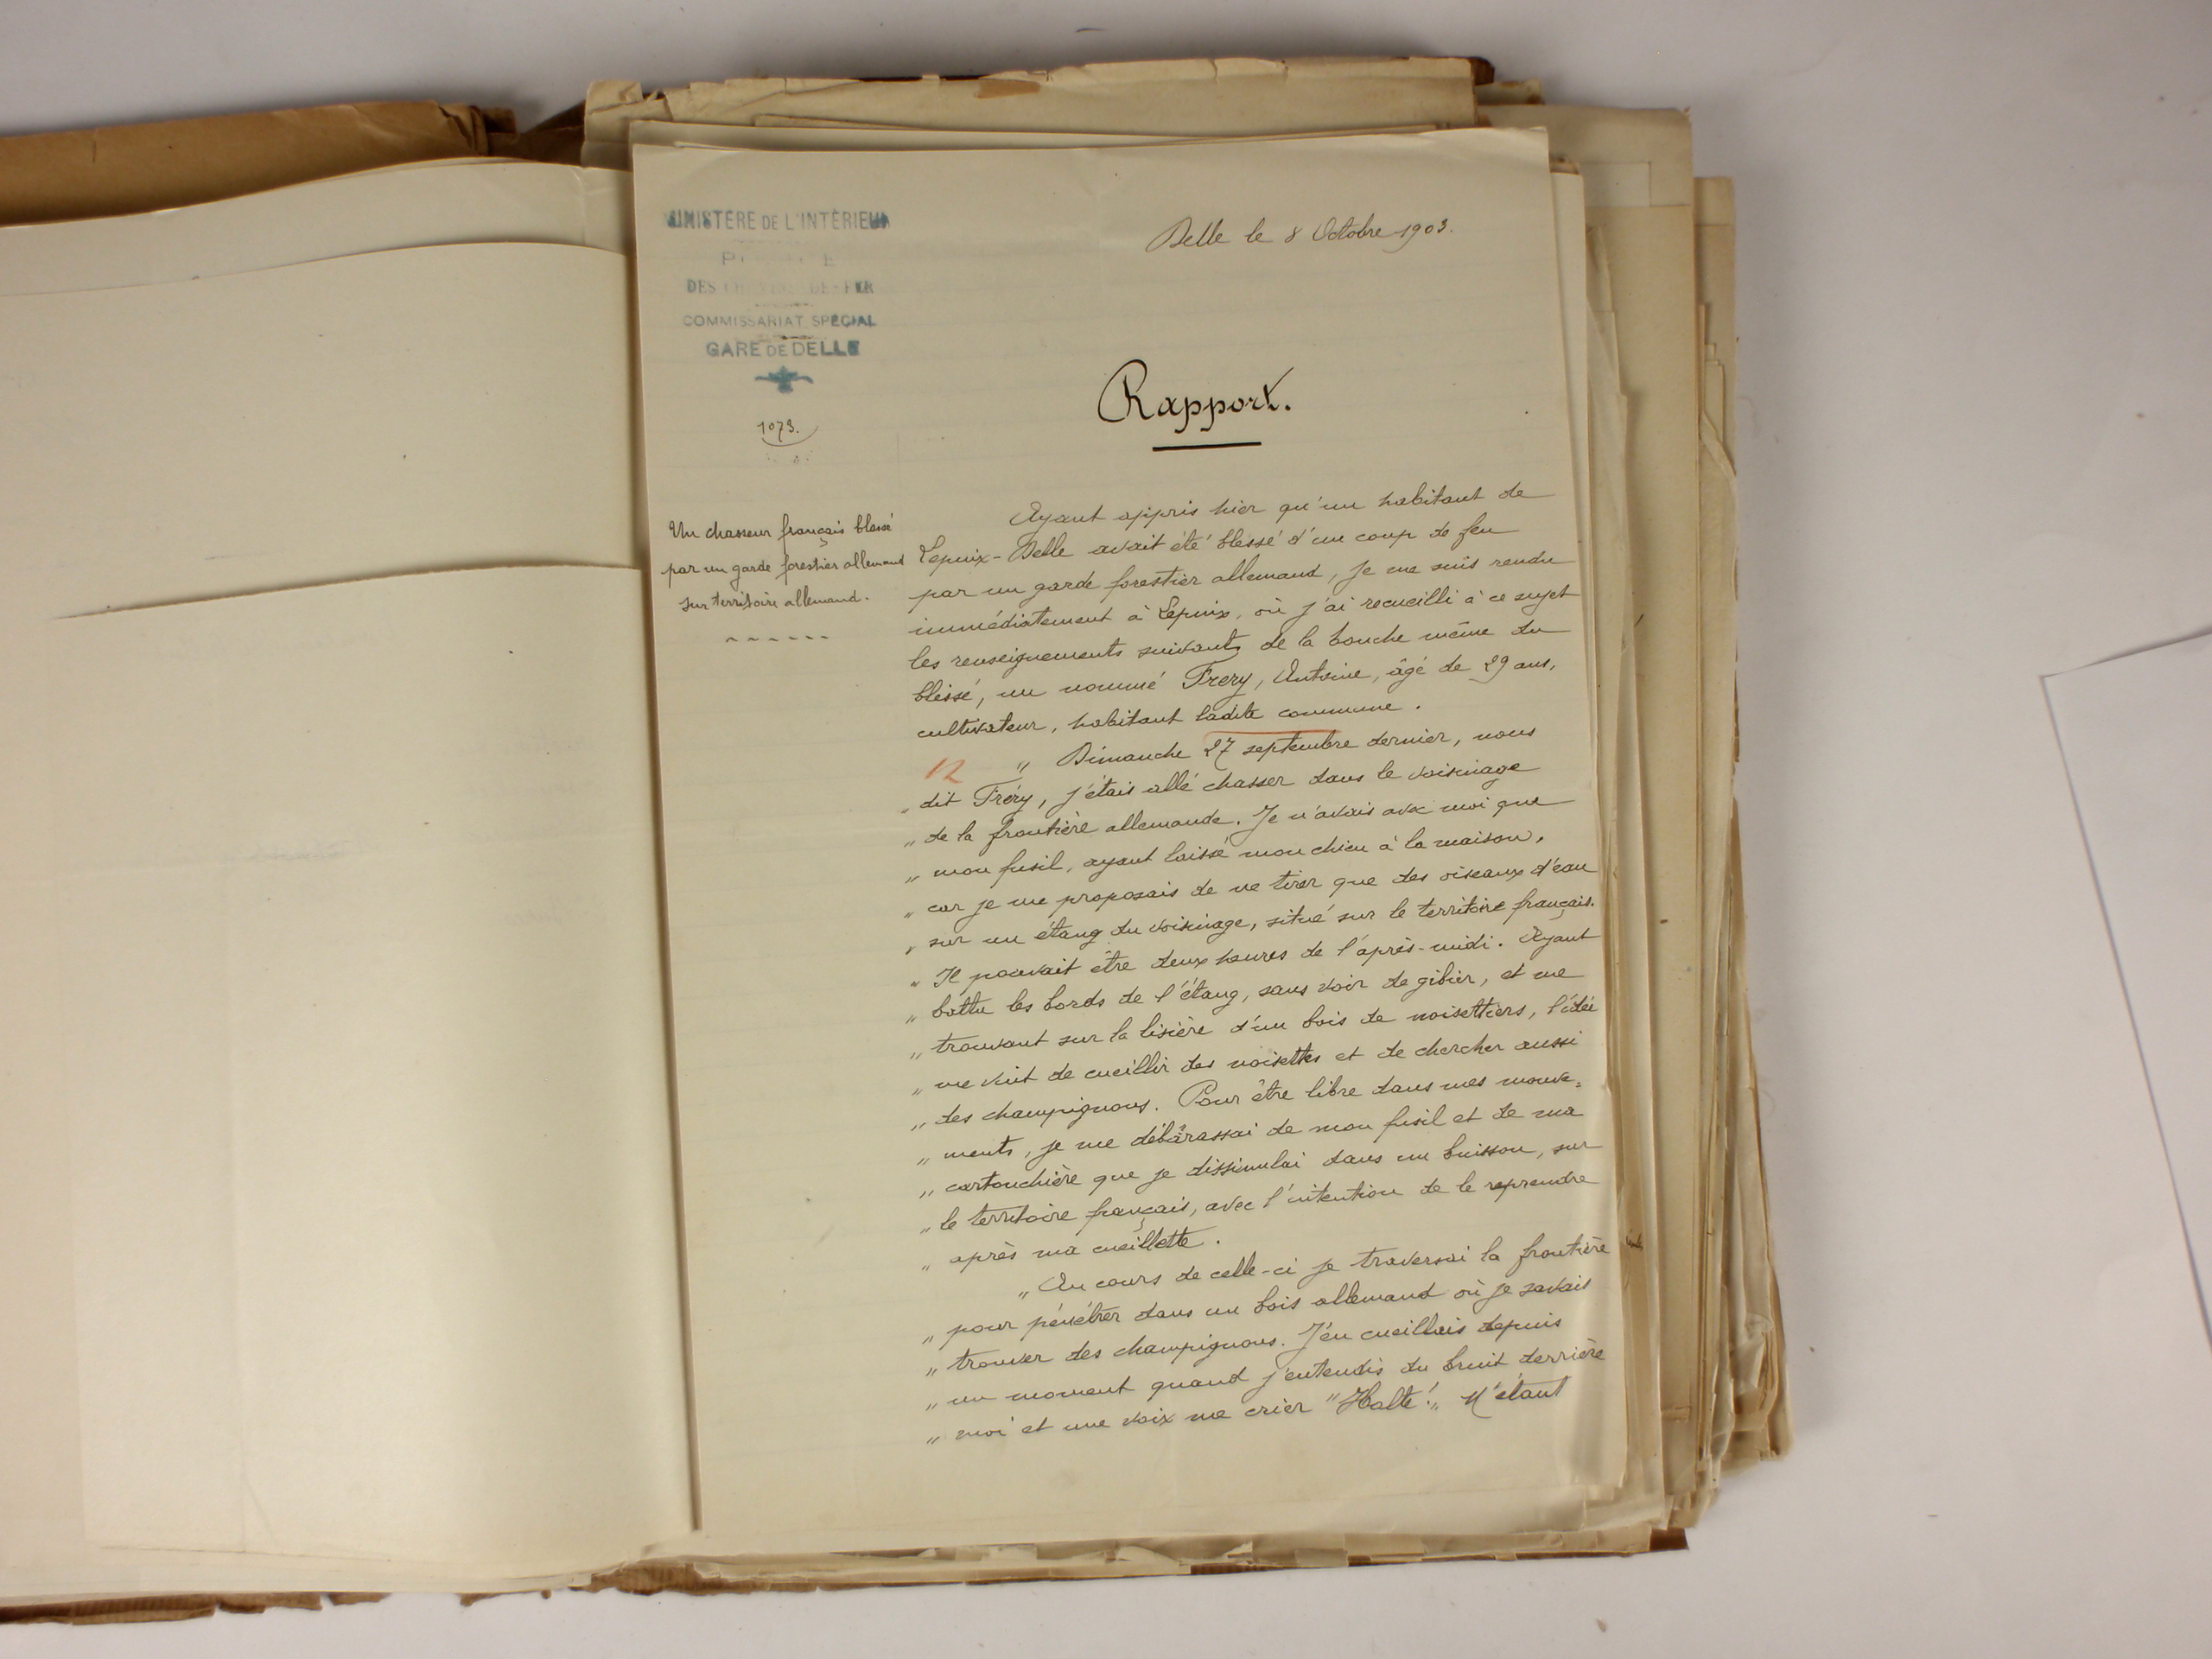 MINISTÈRE DE L'INTÉRIEUR
DES
COMMISSARIAT SPÉCIAL
GARE DE DELLE
1073.
Delle le 8 Octobre 1903.
Rapport.
Un chasseur français blessé
par un garde forestier allemand
sur territoire allemand.
Ayant appris hier qu'un habitant de
Lepuix-Delle avait été blessé d'un coup de feu
par un garde forestier allemand, je me suis rendu
immédiatement à Lepuix, où j'ai recueilli à ce sujet
les renseignements suivants de la bouche même du
blessé, un nommé Frery, Antoine, âgé de 29 ans,
cultivateur, habitant ladite commune.
12
„ Dimanche 27 septembre dernier, nous
„ dit Fréry, j'étais allé chasser dans le voisinage
„ de la frontière allemande. Je n'avais avec moi que
„ mon fusil, ayant laissé mon chien à la maison,
„ car je me proposais de ne tirer que des oiseaux d'eau
„ sur un étang du voisinage, situé sur le territoire français.
„ Il pouvait être deux heures de l'après-midi. Ayant
„ battu les bords de l'étang, sans voir de gibier, et me
„ trouvant sur la lisière d'un bois de noisettiers, l'idée
„ me vint de cueillir des noisettes et de chercher aussi
„ des champignons. Pour être libre dans mes mouve=
„ ments, je me débârassai de mon fusil et de ma
„ cartouchière que je dissimulai dans un buisson, sur
„ le territoire français, avec l'intention de le reprendre
„ après ma cueillette.
„ Au cours de celle-ci je traversai la frontière
„ pour pénétrer dans un bois allemand où je savais
„ trouver des champignons. J'en cueillais depuis
„ un moment quand j'entendis du bruit derrière
„ moi et une voix me crier "Halte!„ N'étant